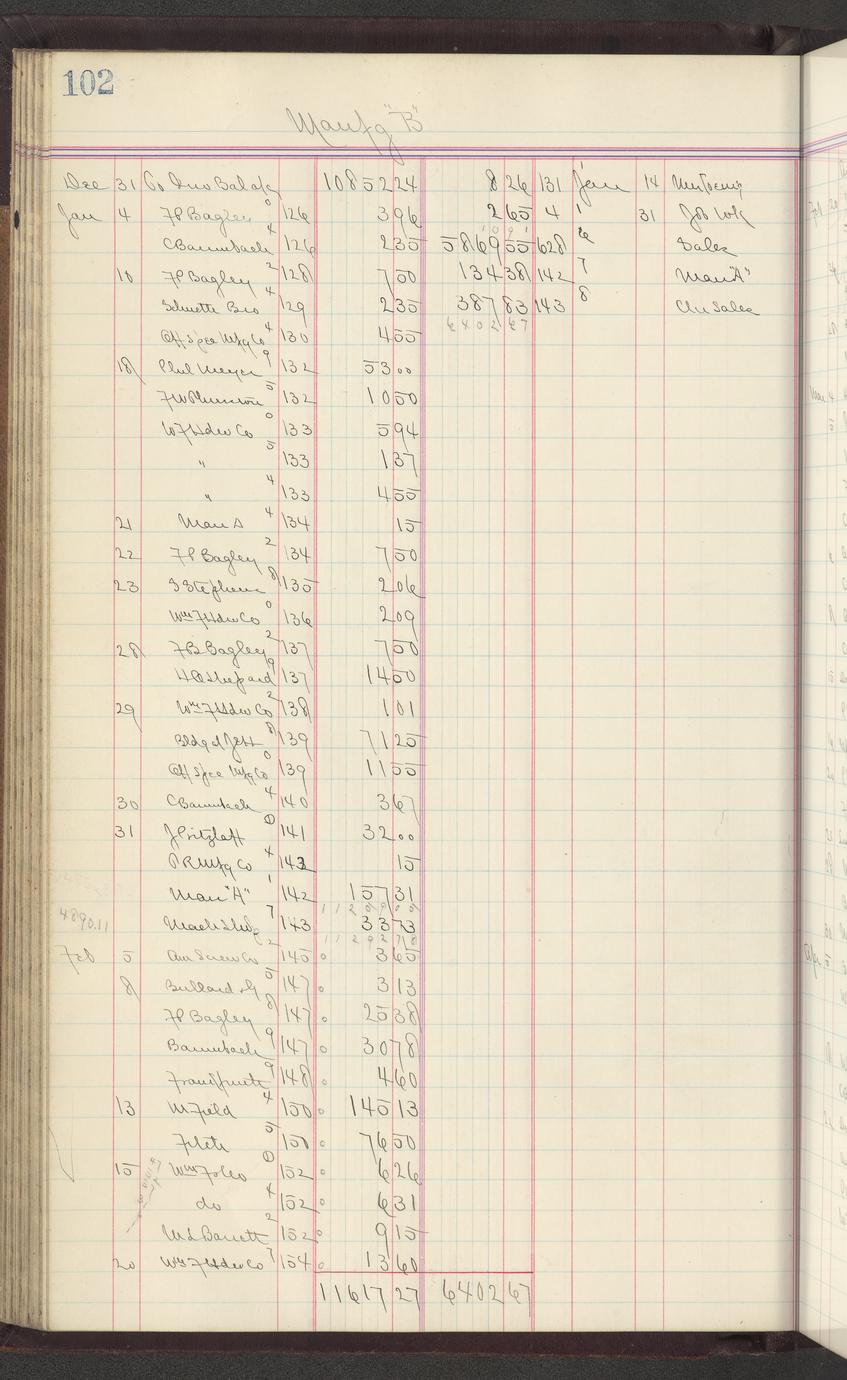 102
Manfg "B"
Dec 31 To Inv Bal 10852 24 8 26 131 Jan 14
Jan 4 FP Bagley 0 126 3 96 2 65 4 1 31 Job Wk
C Baumbach 4 126 2 35 5869 55 628 6 Sales
18 FP Bagley 2 128 7 50 134 38 142 7 Man "A"
Schuette Bro 4 129 2 35 387 83 143 8 Sales
Off Spec Mfg Co 4 130 4 55 6402 67
18 Phil Meyer 9 132 53 00
5 132 10 50
W F Hdw Co 0 133 5 94
" 5 133 1 37
" 4 133 4 55
21 Man A 4 134 15
22 FP Bagley 2 134 7 50
23 S Stephens 8 135 2 06
Wm F Hdw Co 0 136 2 09
28 F B Bagley 2 137 7 50
H O Shepard 9 137 14 50
29 Wm F Hdw Co 2 138 1 01
Bldg & 8 139 71 25
Off Spec Mfg Co 0 139 11 55
30 C Baumbach 4 140 3 67
31 J Pritzlaff 1 141 32 00
P R Mfg Co 4 143 15
Man "A" 1 142 157 31
4890.11 Mach 7 143 33 73
Feb 5 Am Screw Co 2 145 0 3 65
8 Bullard & G 5 147 0 3 13
FP Bagley 8 147 0 25 38
Baumbach 9 147 0 30 78
9 148 0 4 60
13 M Field 4 150 0 145 13
5 150 0 76 50
15 1 152 0 6 26
do 4 152 0 6 31
M L Barrett 2 152 0 9 15
20 Wm F Hdw Co 7 154 0 13 60
11617 27 6402 67